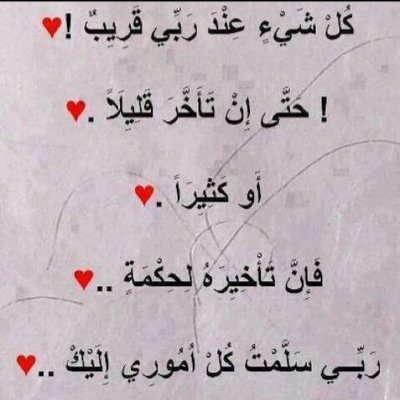 كُلْ شَيْءٍ عِنْدَ رَبِّي قَرِيبٌ !♥
! حَتَّى إِنْ تَأَخَّرَ قَلِيلَاً .♥
أَو كَثِيرَاً .♥
فَإِنَّ تَأْخِيرَهُ لِحِكْمَةٍ ..♥
رَبِّـــي سَلَّمْتُ كُلْ اُمُورِي إِلَيْكْ ..♥